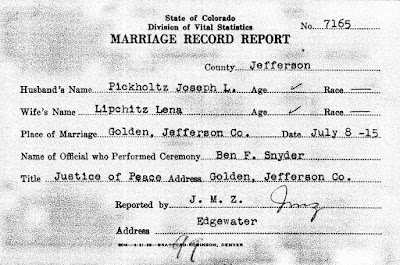 State of Colorado
Division of Vital Statistics No. 7165
MARRIAGE RECORD REPORT
County Jefferson
Husband's Name Pickholtz Joseph L. Age ✓ Race —
Wife's Name Lipchitz Lena Age ✓ Race —
Place of Marriage Golden, Jefferson Co. Date July 8 -15
Name of Official who Performed Ceremony Ben F. Snyder
Title Justice of Peace Address Golden, Jefferson Co.
Reported by J. M. Z. Jmz
Edgewater
Address
BRADFORD-ROBINSON, DENVER